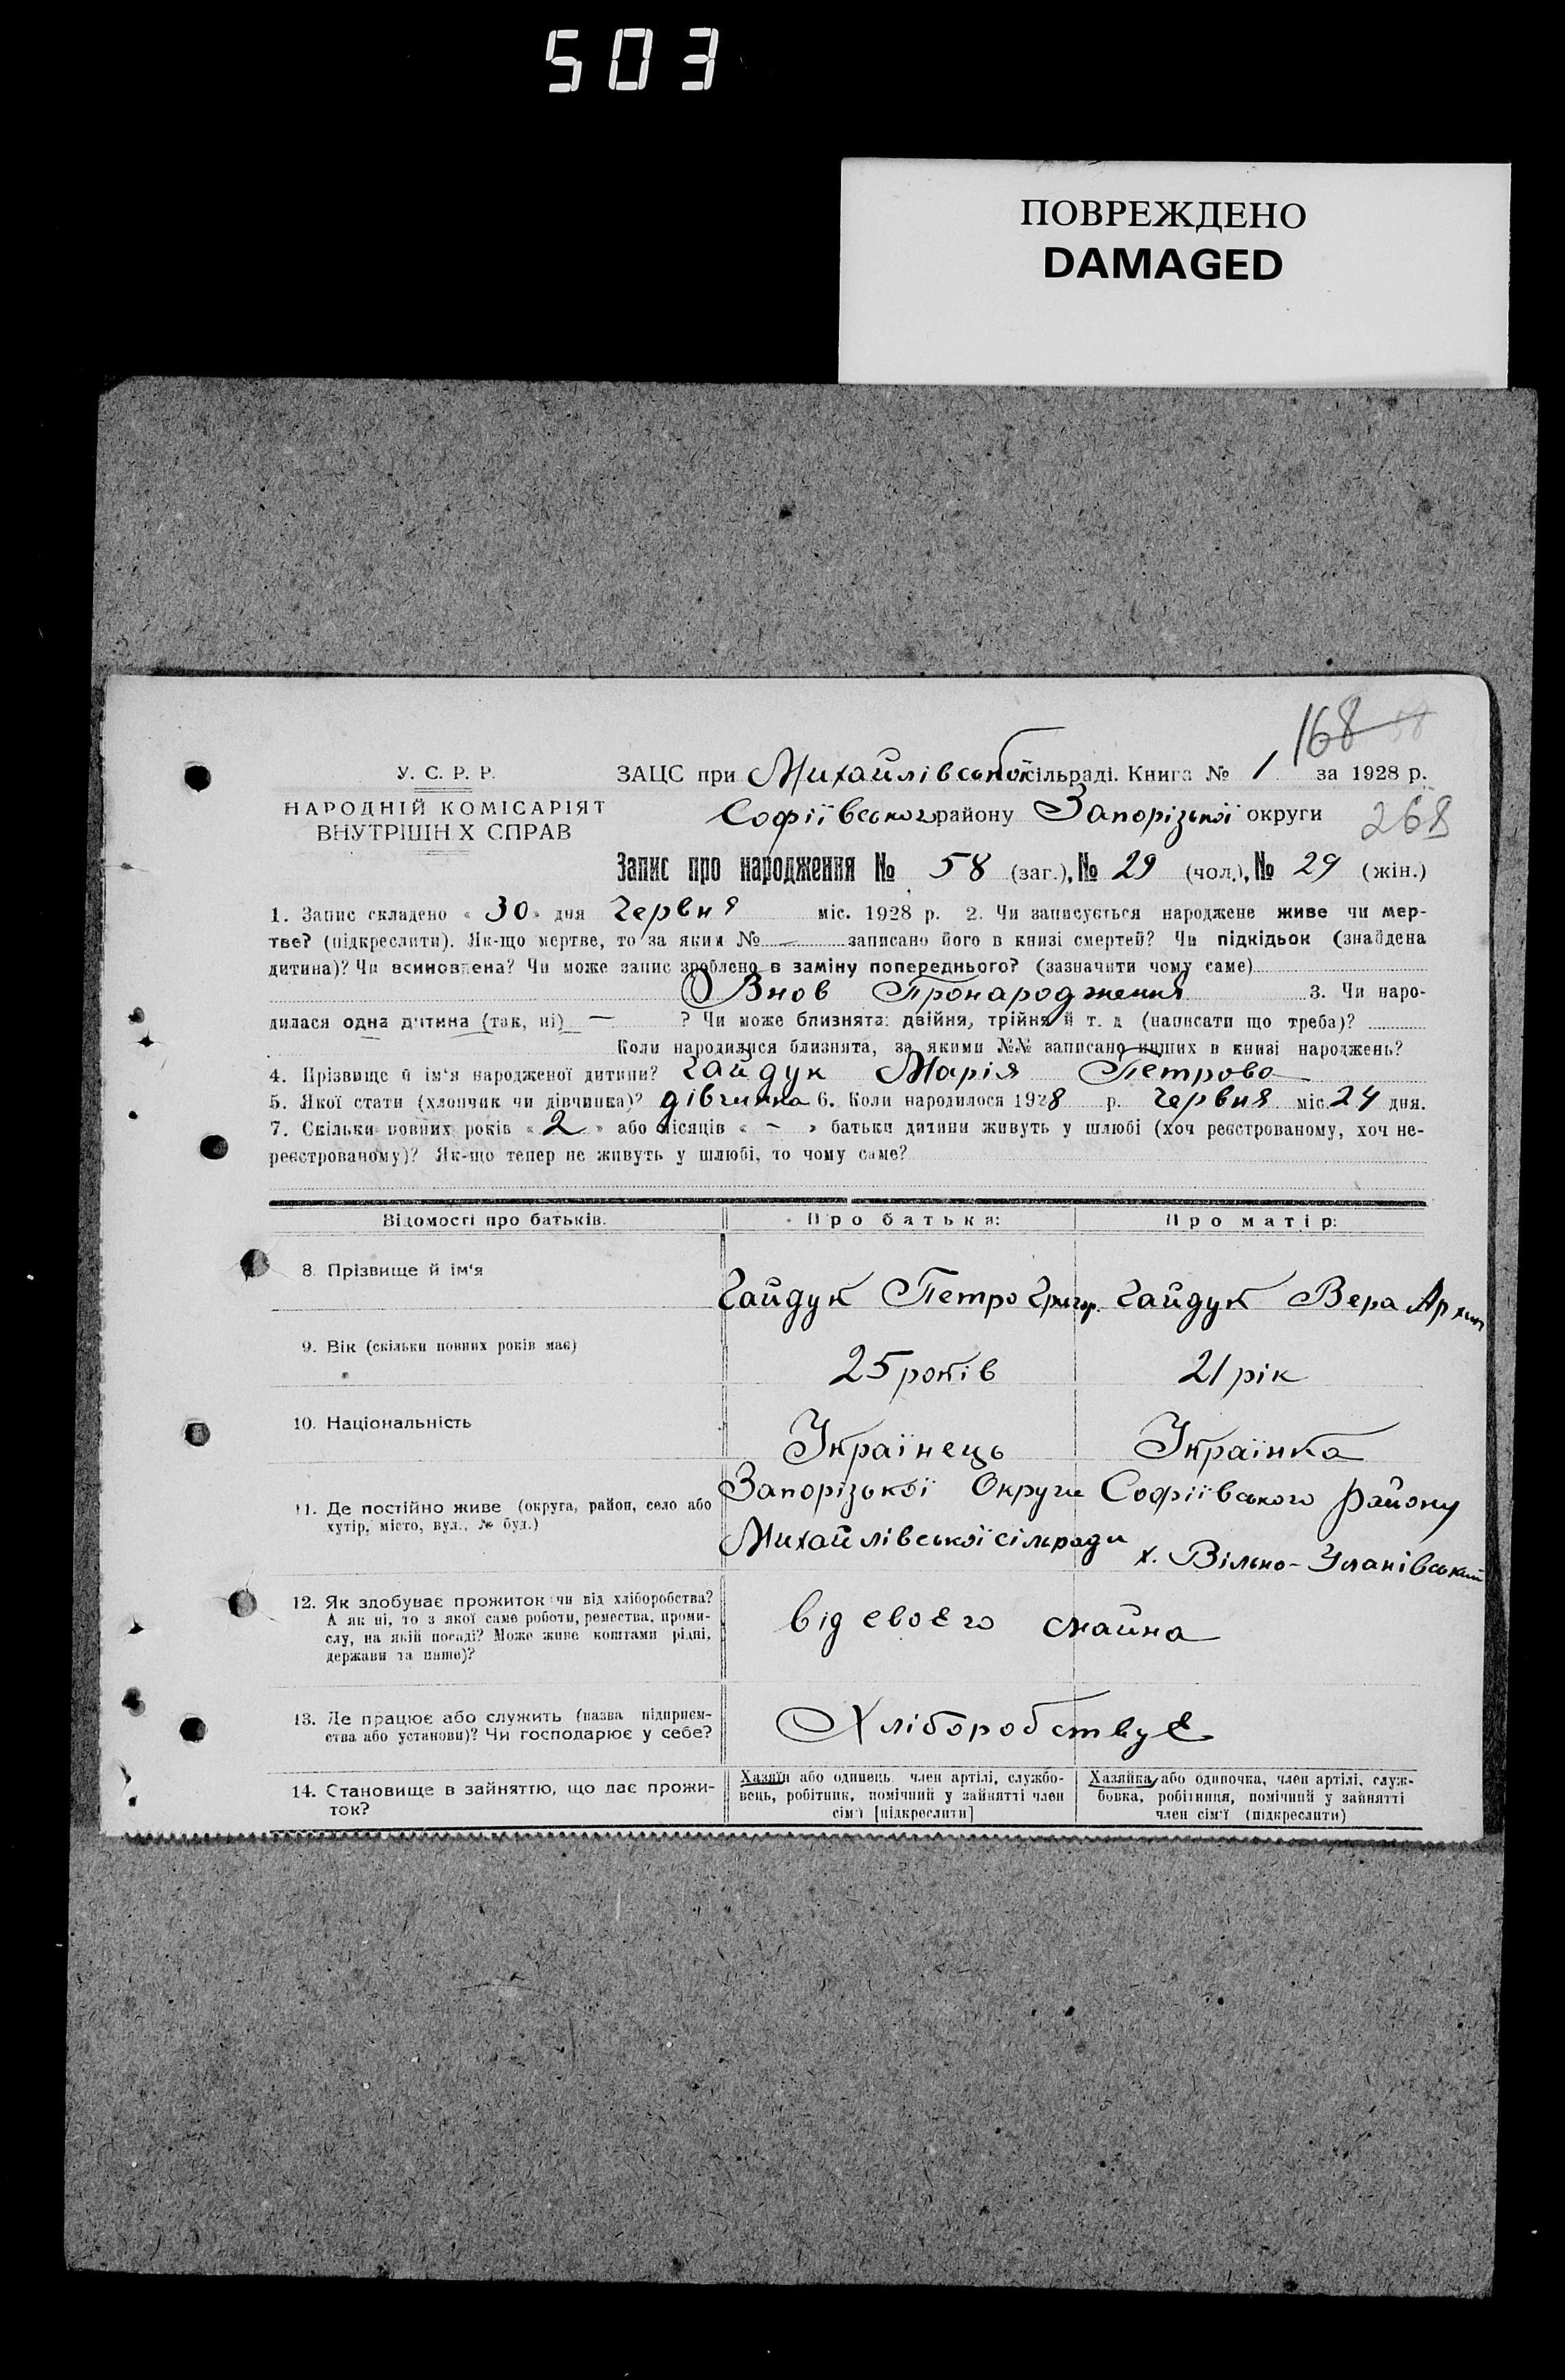 503
ПОВРЕЖДЕНО
DAMAGED
168 58
У. С. Р. Р.
НАРОДНІЙ КОМІСАРІЯТ
ВНУТРІШН Х СПРАВ
ЗАЦС при Михайлівській сільраді. Книга № 1 за 1928 р.
Софіївського району Запорізької округи
268
Запис про народження № 58 (заг.), № 29 (чол.), № 29 (жін.)
1. Запис складено « 30 » дня Червня міс. 1928 р. 2. Чи записується народжене живе чи мер-
тве? (підкреслити). Як-що мертве, то за яким № — записано його в книзі смертей? Чи підкідьок (знайдена
дитина)? Чи всиновлена? Чи може запис зроблено в заміну попереднього? (зазначити чому саме)
Внов Пронародження 3. Чи наро-
дилася одна дитина (так, ні) — ? Чи може близнята: двійня, трійня й т. д (написати що треба)?
Коли народилися близнята, за якими №№ записано инших в книзі народжень?
4. Прізвище й ім'я народженої дитини? Гайдук Марія Петрова
5. Якої стати (хлопчик чи дівчинка)? дівчинка 6. Коли народилося 1928 р. Червня міс. 24 дня.
7. Скільки повних років « 2 » або місяців « - » батьки дитини живуть у шлюбі (хоч реєстрованому, хоч не-
реєстрованому)? Як-що тепер не живуть у шлюбі, то чому саме?
Відомості про батьків. Про батька: Про матір:
8. Прізвище й ім'я
Гайдук Петро Григор. Гайдук Вера Архип
9. Вік (скільки повних років має)
25 років 21 рік
10. Національність
Українець Українка
Запорізької Округи Софіївського району
11. Де постійно живе (округа, район, село або
хутір, місто, вул., № буд.)
Михайлівської сільради х. Вільно-Уланівський
12. Як здобуває прожиток чи від хліборобства?
А як ні, то з якої саме роботи, ремества, проми-
слу, на якій посаді? Може живе коштами рідні,
держави та инше)?
від своєго майна
13. Де працює або служить (назва підприєм-
ства або установи)? Чи господарює у себе?
Хліборобствує
14. Становище в зайняттю, що дає прожи-
ток?
Хазяїн або одинець член артілі, службо-
вець, робітник, помічний у зайнятті член
сім'ї [підкреслити]
Хазяйка, або одиночка, член артілі, служ-
бовка, робітниця, помічний у зайнятті
член сім'ї (підкреслити)